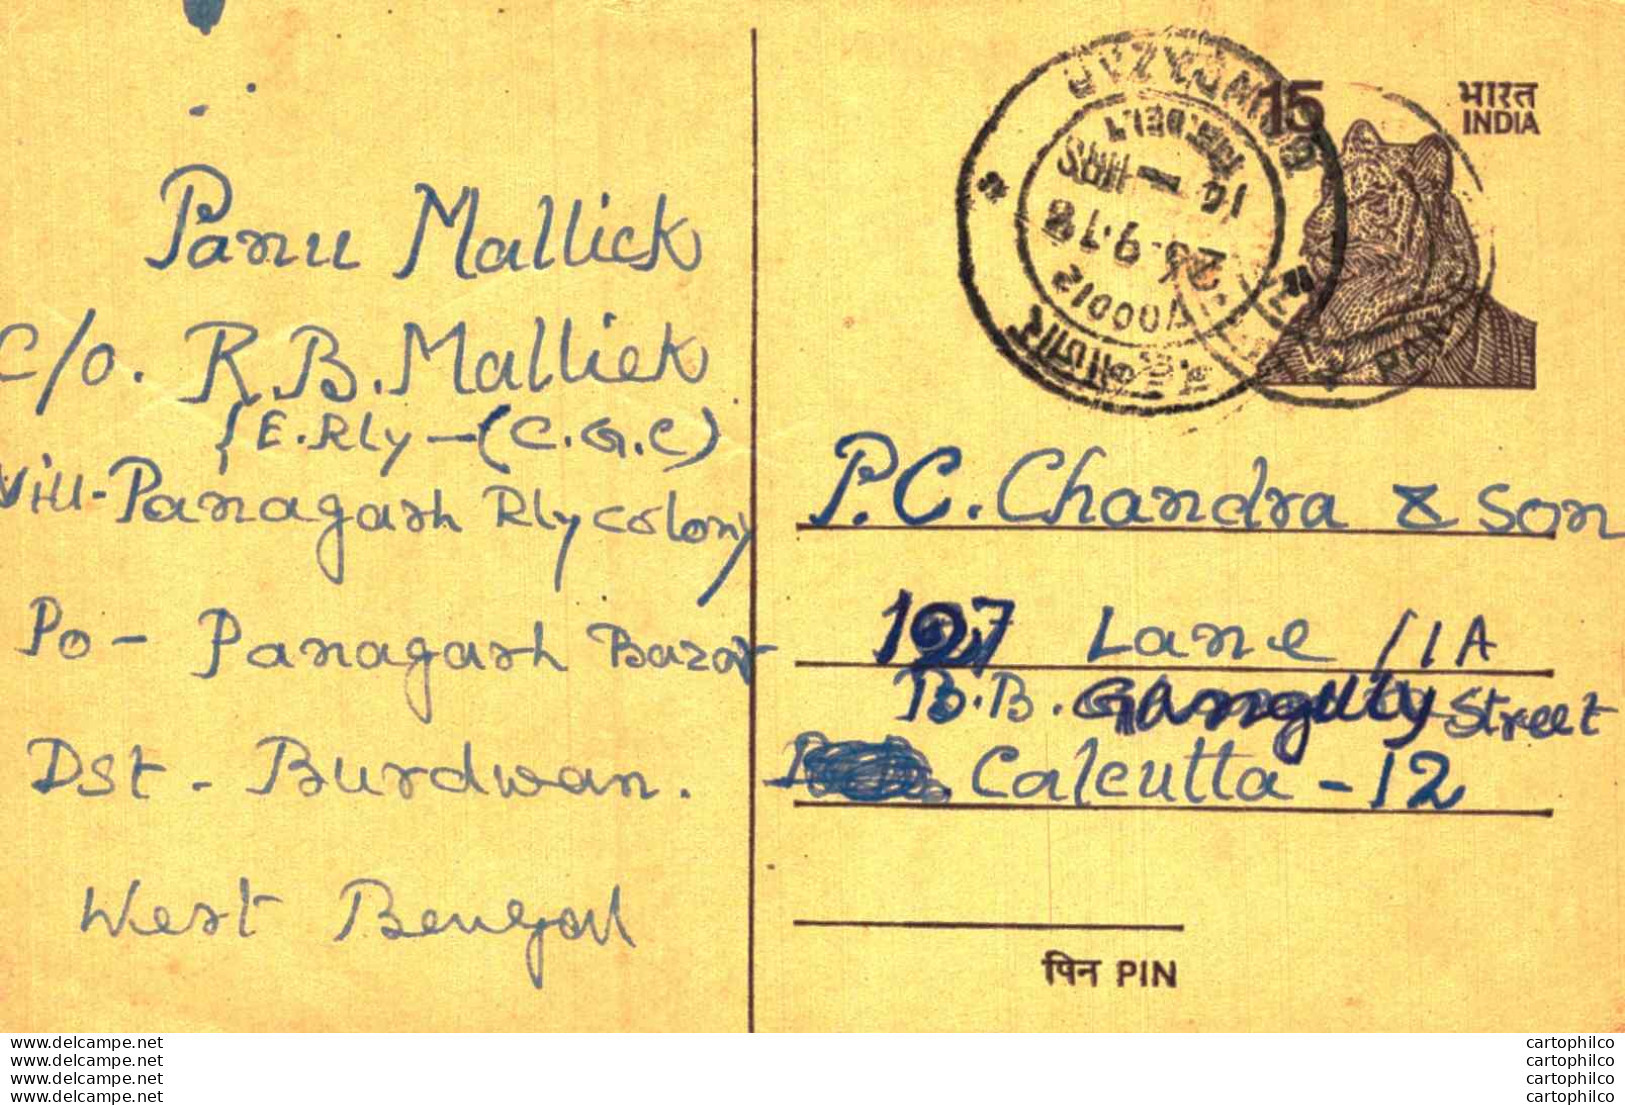 Panu Mallick
C/o. R.B. Mallick
{E.Rly-(C.G.C)
Vill-Panagarh Rly colony
Po - Panagarh Bazar
Dst - Burdwan.
West Bengal
BOWBAZAR
DELY.
16 - HRS
23.9.78
700012
15
भारत
INDIA
PAN
P.C. Chandra & Son
127 Lane /1A
B.B. Ganguly Street
Calcutta - 12
पिन PIN
www.delcampe.net
www.delcampe.net
www.delcampe.net
www.delcampe.net
cartophilco
cartophilco
cartophilco
cartophilco